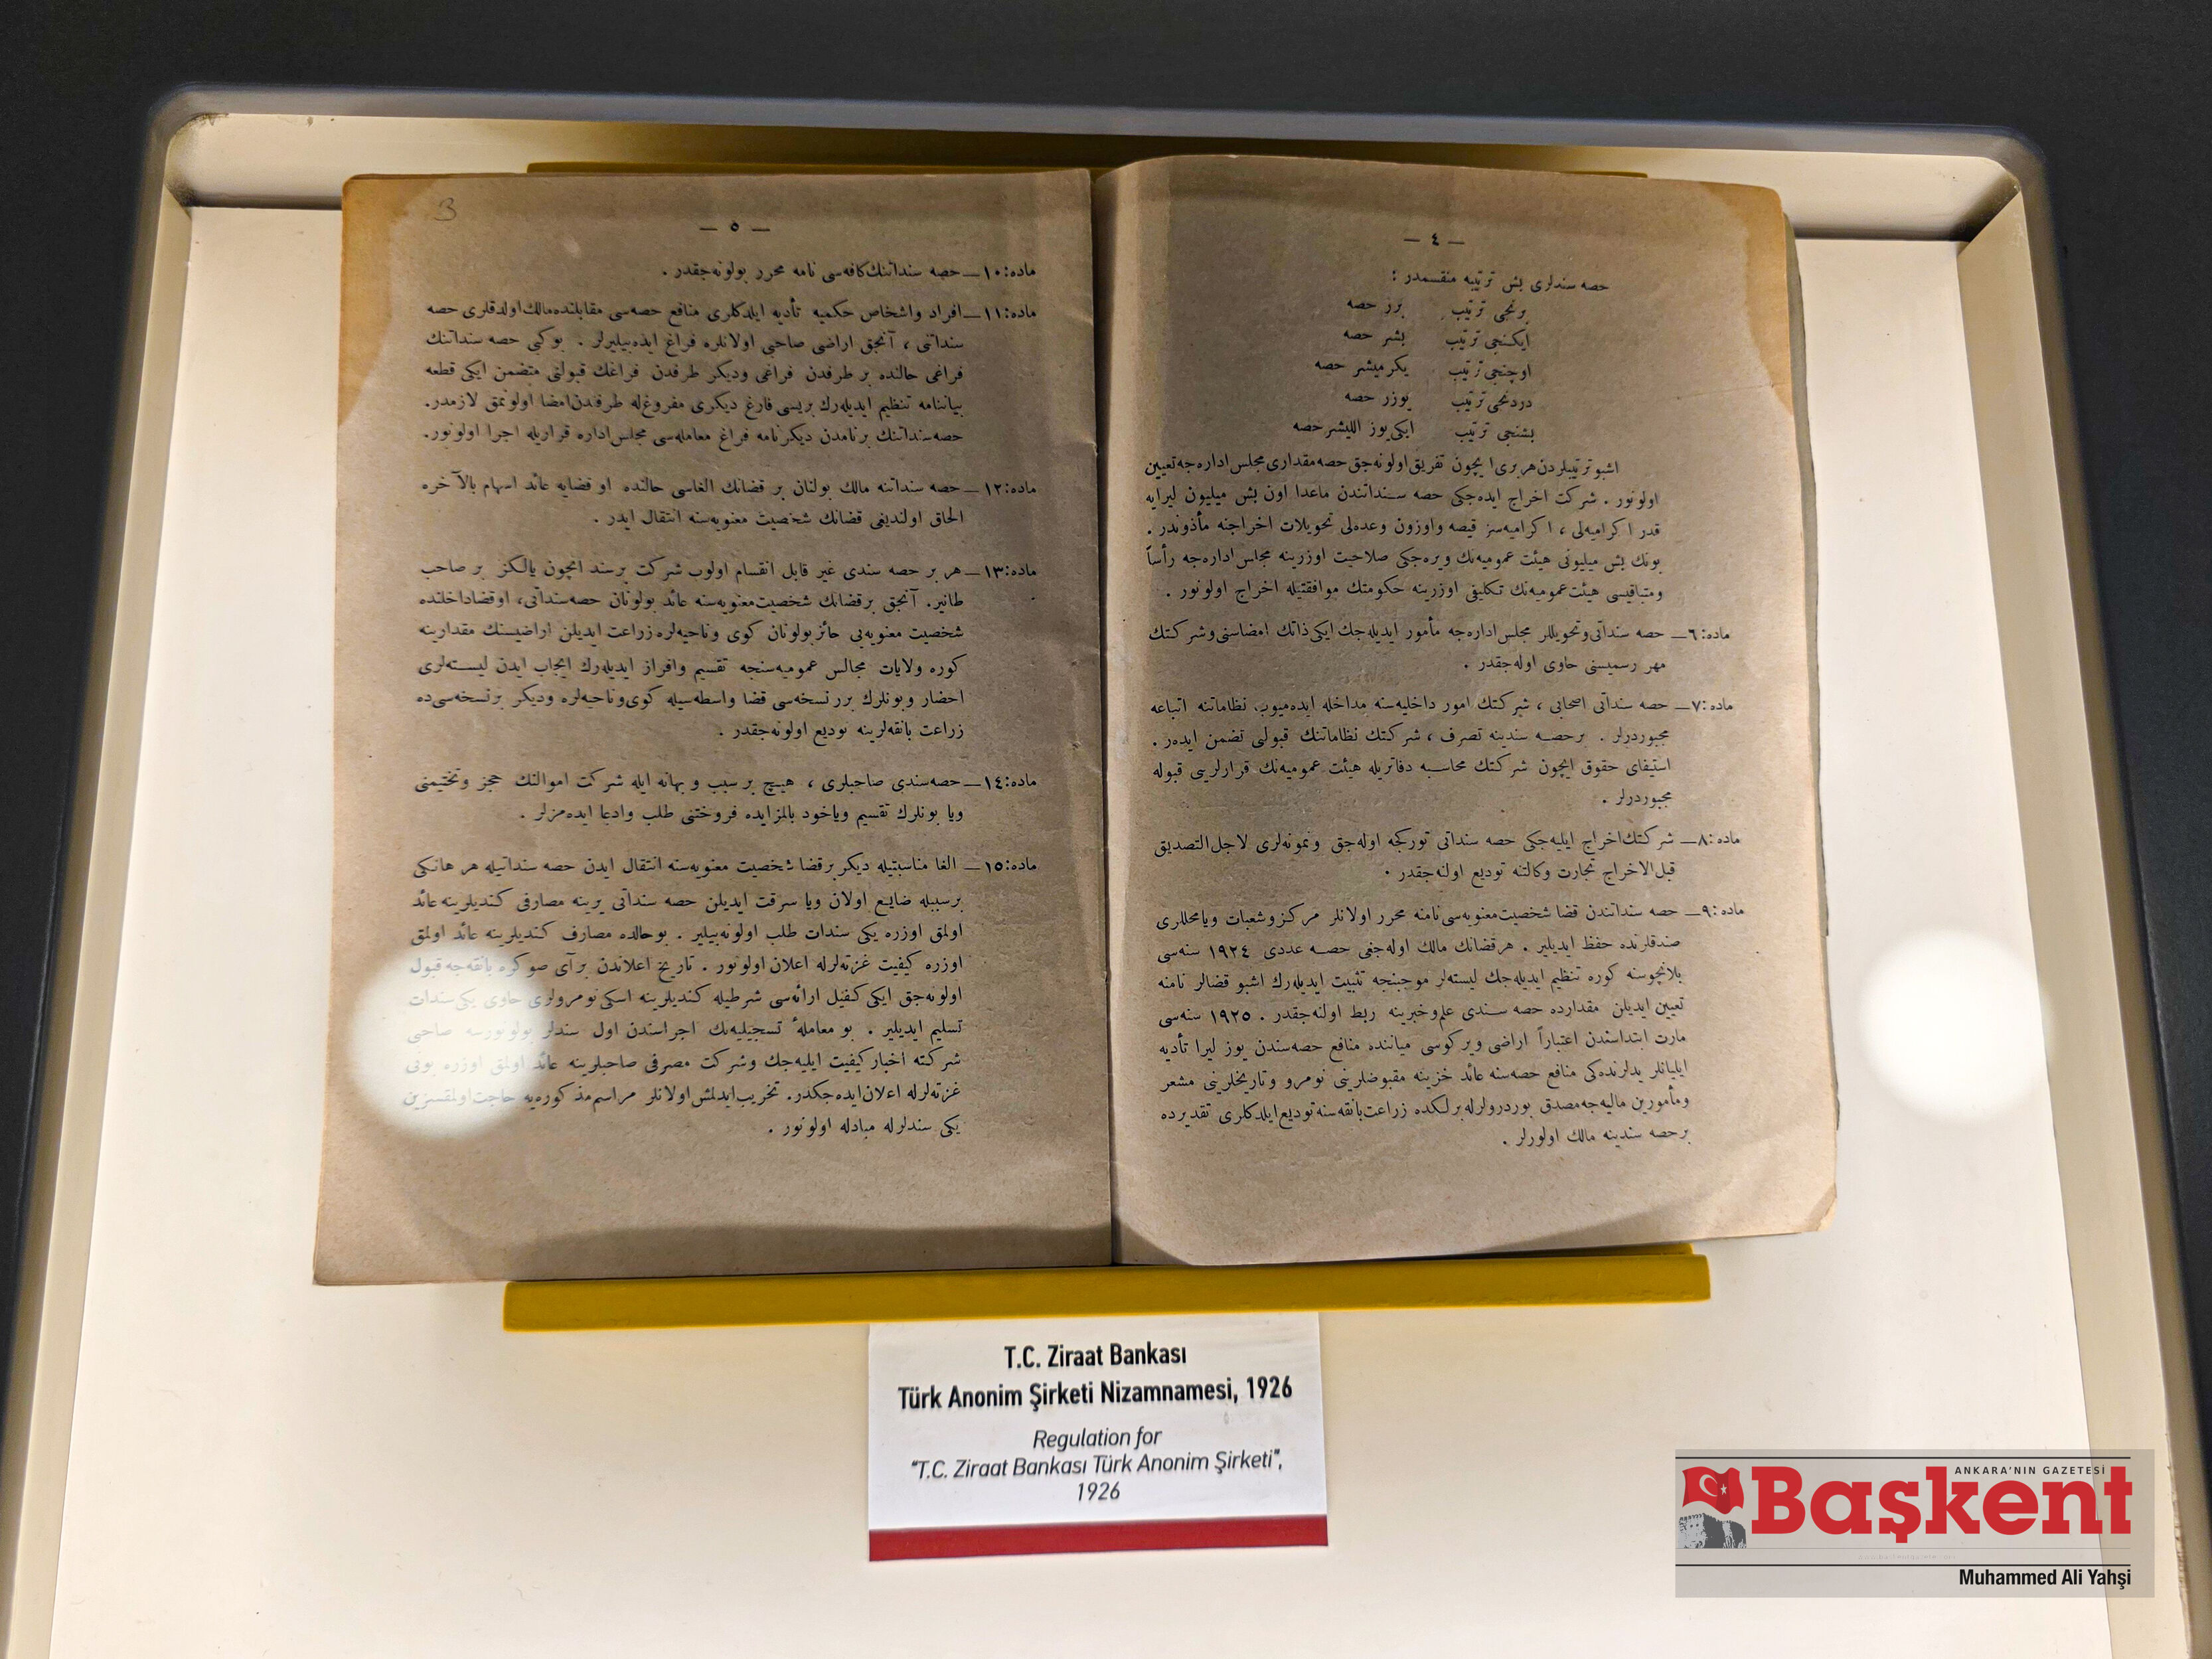 — ٤ —
حصه سندلری بش ترتیبه منقسمدر :
برنجی ترتیب برر حصه
ایکنجی ترتیب بشر حصه
اوچنجی ترتیب یکرمیشر حصه
دردنجی ترتیب یوزر حصه
بشنجی ترتیب ایکی یوز اللیشر حصه
اشبو ترتیبلردن هر بری ایچون تفریق اولونه‌جق حصه مقداری مجلس اداره‌جه تعیین
اولونور . شرکت اخراج ایده‌جکی حصه سنداتندن ماعدا اون بش میلیون لیرایه
قدر اکرامیه‌لی ، اکرامیه‌سز قیصه واوزون وعده‌لی تحویلات اخراجنه مأذوندر .
بونك بش میلیونی هیئت عمومیه‌نك ویره‌جکی صلاحیت اوزرینه مجلس اداره‌جه رأساً
ومتباقیسی هیئت عمومیه‌نك تکلیفی اوزرینه حکومتك موافقتیله اخراج اولونور .
ماده :٦— حصه سنداتی وتحویللر مجلس اداره‌جه مأمور ایدیله‌جك ایکی ذاتك امضاسنی وشرکتك
مهر رسمیسنی حاوی اوله‌جقدر .
ماده :٧— حصه سنداتی اصحابی ، شرکتك امور داخلیه‌سنه مداخله ایده‌میوب نظاماتنه اتباعه
مجبوردرلر . بر حصه سندینه تصرف ، شرکتك نظاماتنك قبولی تضمن ایده‌ر .
استیفای حقوق ایچون شرکتك محاسبه دفاتریله هیئت عمومیه‌نك قرارلرینی قبوله
مجبوردرلر .
ماده :٨— شرکتك اخراج ایلیه‌جکی حصه سنداتی تورکجه اوله‌جق ونمونه‌لری لاجل التصدیق
قبل الاخراج تجارت وکالتنه تودیع اولنه‌جقدر .
ماده :٩— حصه سنداتندن قضا شخصیت معنویه‌سی نامنه محرر اولانلر مرکز وشعبات ویا محللری
صندقلرنده حفظ ایدیلیر . هر قضانك مالك اوله‌جغی حصه عددی ١٩٢٤ سنه‌سی
بلانچوسنه کوره تنظیم ایدیله‌جك لیسته‌لر موجبنجه تثبیت ایدیله‌رك اشبو قضالر نامنه
تعیین ایدیلن مقدارده حصه سندی علم وخبرینه ربط اولنه‌جقدر . ١٩٢٥ سنه‌سی
مارت ابتداسندن اعتباراً اراضی ویرکوسی میاننده منافع حصه‌سندن یوز لیرا تأدیه
ایلیانلر یدلرنده‌کی منافع حصه‌سنه عائد خزینه مقبوضلرینی نومرو وتاریخلرینی مشعر
ومأمورین مالیه‌جه مصدق بوردرولرله برلکده زراعت بانقه‌سنه تودیع ایلدکلری تقدیرده
بر حصه سندینه مالك اولورلر .
3
— ٥ —
ماده :١٠— حصه سنداتنك کافه‌سی نامه محرر بولونه‌جقدر .
ماده :١١— افراد واشخاص حکمیه تأدیه ایلدکلری منافع حصه‌سی مقابلنده مالك اولدقلری حصه
سنداتنی ، آنجق اراضی صاحبی اولانلره فراغ ایده‌بیلیرلر . بو کبی حصه سنداتنك
فراغی حالنده بر طرفدن فراغی ودیکر طرفدن فراغك قبولنی متضمن ایکی قطعه
بیاننامه تنظیم ایدیله‌رك بریسی فارغ دیکری مفروغ‌له طرفندن امضا اولونمق لازمدر.
حصه سنداتنك بر نامدن دیکر نامه فراغ معامله‌سی مجلس اداره قراریله اجرا اولونور.
ماده :١٢— حصه سنداتنه مالك بولنان بر قضانك الغاسی حالنده او قضایه عائد اسهام بالآخره
الحاق اولندیغی قضانك شخصیت معنویه‌سنه انتقال ایدر .
ماده :١٣— هر بر حصه سندی غیر قابل انقسام اولوب شرکت بر سند ایچون یالکز بر صاحب
طانیر. آنجق بر قضانك شخصیت معنویه‌سنه عائد بولونان حصه سنداتی، او قضا داخلنده
شخصیت معنویه‌یی حائز بولونان کوی وناحیه‌لره زراعت ایدیلن اراضیسنك مقدارینه
کوره ولایات مجالس عمومیه‌سنجه تقسیم وافراز ایدیله‌رك ایجاب ایدن لیسته‌لری
احضار وبونلرك برر نسخه‌سی قضا واسطه‌سیله کوی وناحیه‌لره ودیکر بر نسخه‌سی ده
زراعت بانقه‌لرینه تودیع اولونه‌جقدر .
ماده :١٤— حصه سندی صاحبلری ، هیچ بر سبب و بهانه ایله شرکت اموالنك حجز وتختیمنی
ویا بونلرك تقسیم ویاخود بالمزایده فروختنی طلب وادعا ایده‌مزلر .
ماده :١٥— الغا مناسبتیله دیکر بر قضا شخصیت معنویه‌سنه انتقال ایدن حصه سنداتیله هر هانکی
بر سببله ضایع اولان ویا سرقت ایدیلن حصه سنداتی یرینه مصارفی کندیلرینه عائد
اولمق اوزره یکی سندات طلب اولونه‌بیلیر . بو حالده مصارف کندیلرینه عائد اولمق
اوزره کیفیت غزته‌لرله اعلان اولونور . تاریخ اعلاندن بر آی صوکره بانقه‌جه قبول
اولونه‌جق ایکی کفیل ارائه‌سی شرطیله کندیلرینه اسکی نومرولری حاوی یکی سندات
تسلیم ایدیلیر . بو معاملهٔ تسجیلیه‌نك اجراسندن اول سندلر بولونورسه صاحبی
شرکته اخبار کیفیت ایلیه‌جك وشرکت مصرفی صاحبلرینه عائد اولمق اوزره بونی
غزته‌لرله اعلان ایده‌جکدر. تخریب ایدلمش اولانلر مراسم مذکوره‌یه حاجت اولمقسزین
یکی سندلرله مبادله اولونور .
T.C. Ziraat Bankası
Türk Anonim Şirketi Nizamnamesi, 1926
Regulation for
"T.C. Ziraat Bankası Türk Anonim Şirketi",
1926
ANKARA'NIN GAZETESİ
Başkent
Muhammed Ali Yahşi